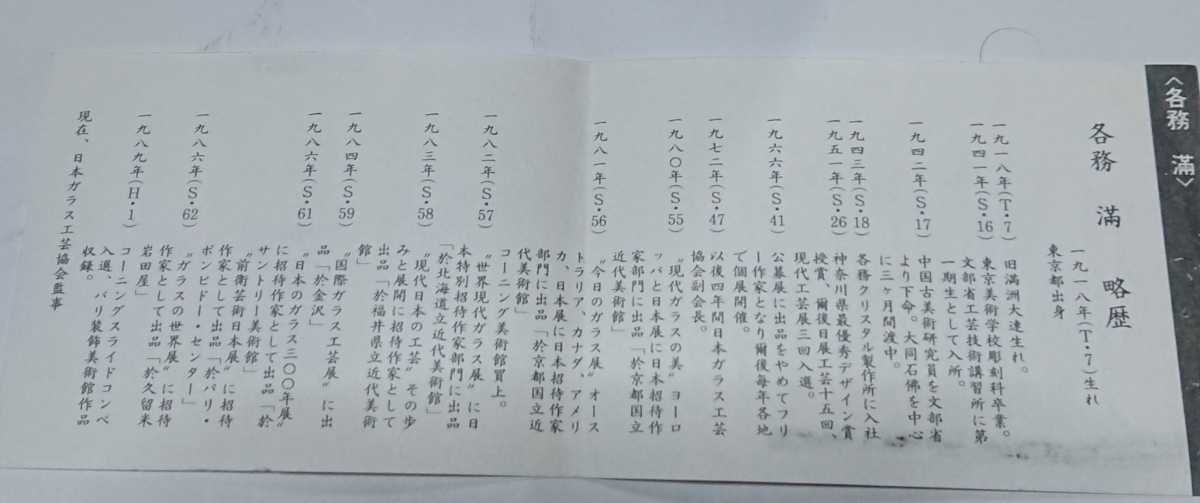 〈各務 滿〉
各務 滿 略歴
一九一八年(T・7)生れ
東京都出身
一九一八年(T・7)
旧満洲大連生れ。
一九四一年(S・16)
東京美術学校彫刻科卒業。
文部省工芸技術講習所に第
一期生として入所。
一九四二年(S・17)
中国古美術研究員を文部省
より下命。大同石佛を中心
に三ヶ月間渡中。
一九四三年(S・18)
各務クリスタル製作所に入社
一九五一年(S・26)
神奈川県最優秀デザイン賞
授賞、爾後日展工芸十五回、
現代工芸展三回入選。
一九六六年(S・41)
公募展に出品をやめてフリ
ー作家となり爾後毎年各地
で個展開催。
一九七二年(S・47)
以後四年間日本ガラス工芸
協会副会長。
一九八〇年(S・55)
〝現代ガラスの美〟ヨーロ
ッパと日本展に日本招待作
家部門に出品「於京都国立
近代美術館」
一九八一年(S・56)
〝今日のガラス展〟オース
トラリア、カナダ、アメリ
カ、日本展に日本招待作家
部門に出品「於京都国立近
代美術館」
コーニング美術館買上。
一九八二年(S・57)
〝世界現代ガラス展〟に日
本特別招待作家部門に出品
「於北海道立近代美術館」
一九八三年(S・58)
〝現代日本の工芸〟その歩
みと展開に招待作家として
出品「於福井県立近代美術
館」
一九八四年(S・59)
〝国際ガラス工芸展〟に出
品「於金沢」
一九八六年(S・61)
〝日本のガラス三〇〇年展〟
に招待作家として出品「於
サントリー美術館」
〝前衛芸術日本展〟に招待
作家として出品「於パリ・
ポンピドー・センター」
一九八六年(S・62)
〝ガラスの世界展〟に招待
作家として出品「於久留米
岩田屋」
一九八九年(H・1)
コーニングスライドコンペ
入選、パリ装飾美術館作品
収録。
現在、日本ガラス工芸協会監事